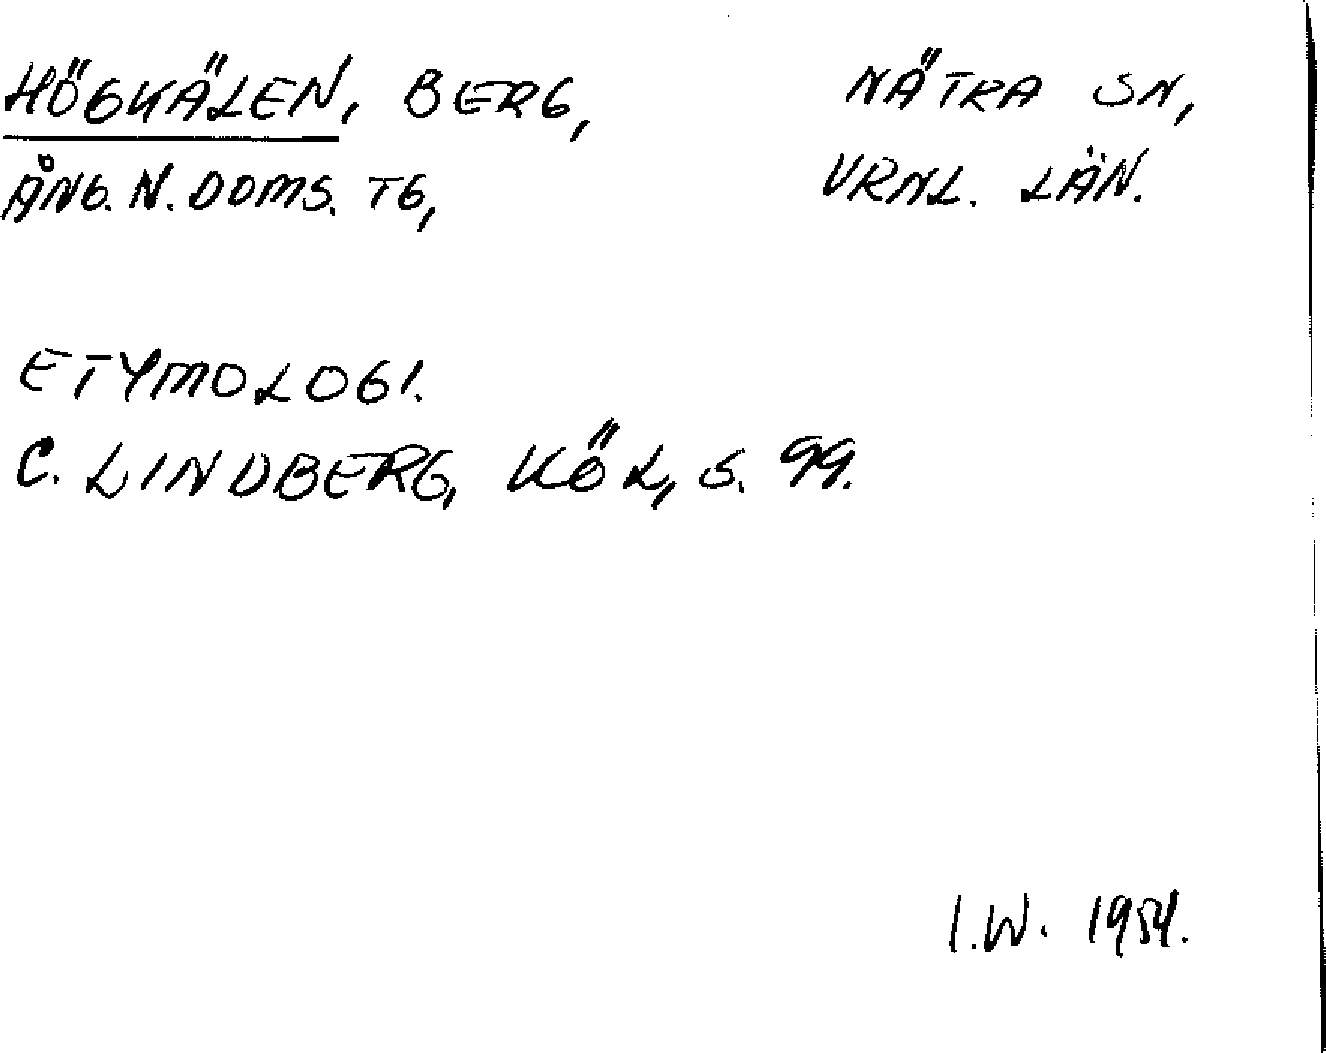 HÖGKÄLEN, BERG, NÄTRA SN,
ÅNG. N. DOMS. TG, VRNL. LÄN.
ETYMOLOGI.
C. LINDBERG, KÖL, S. 99.
I.W. 1954.